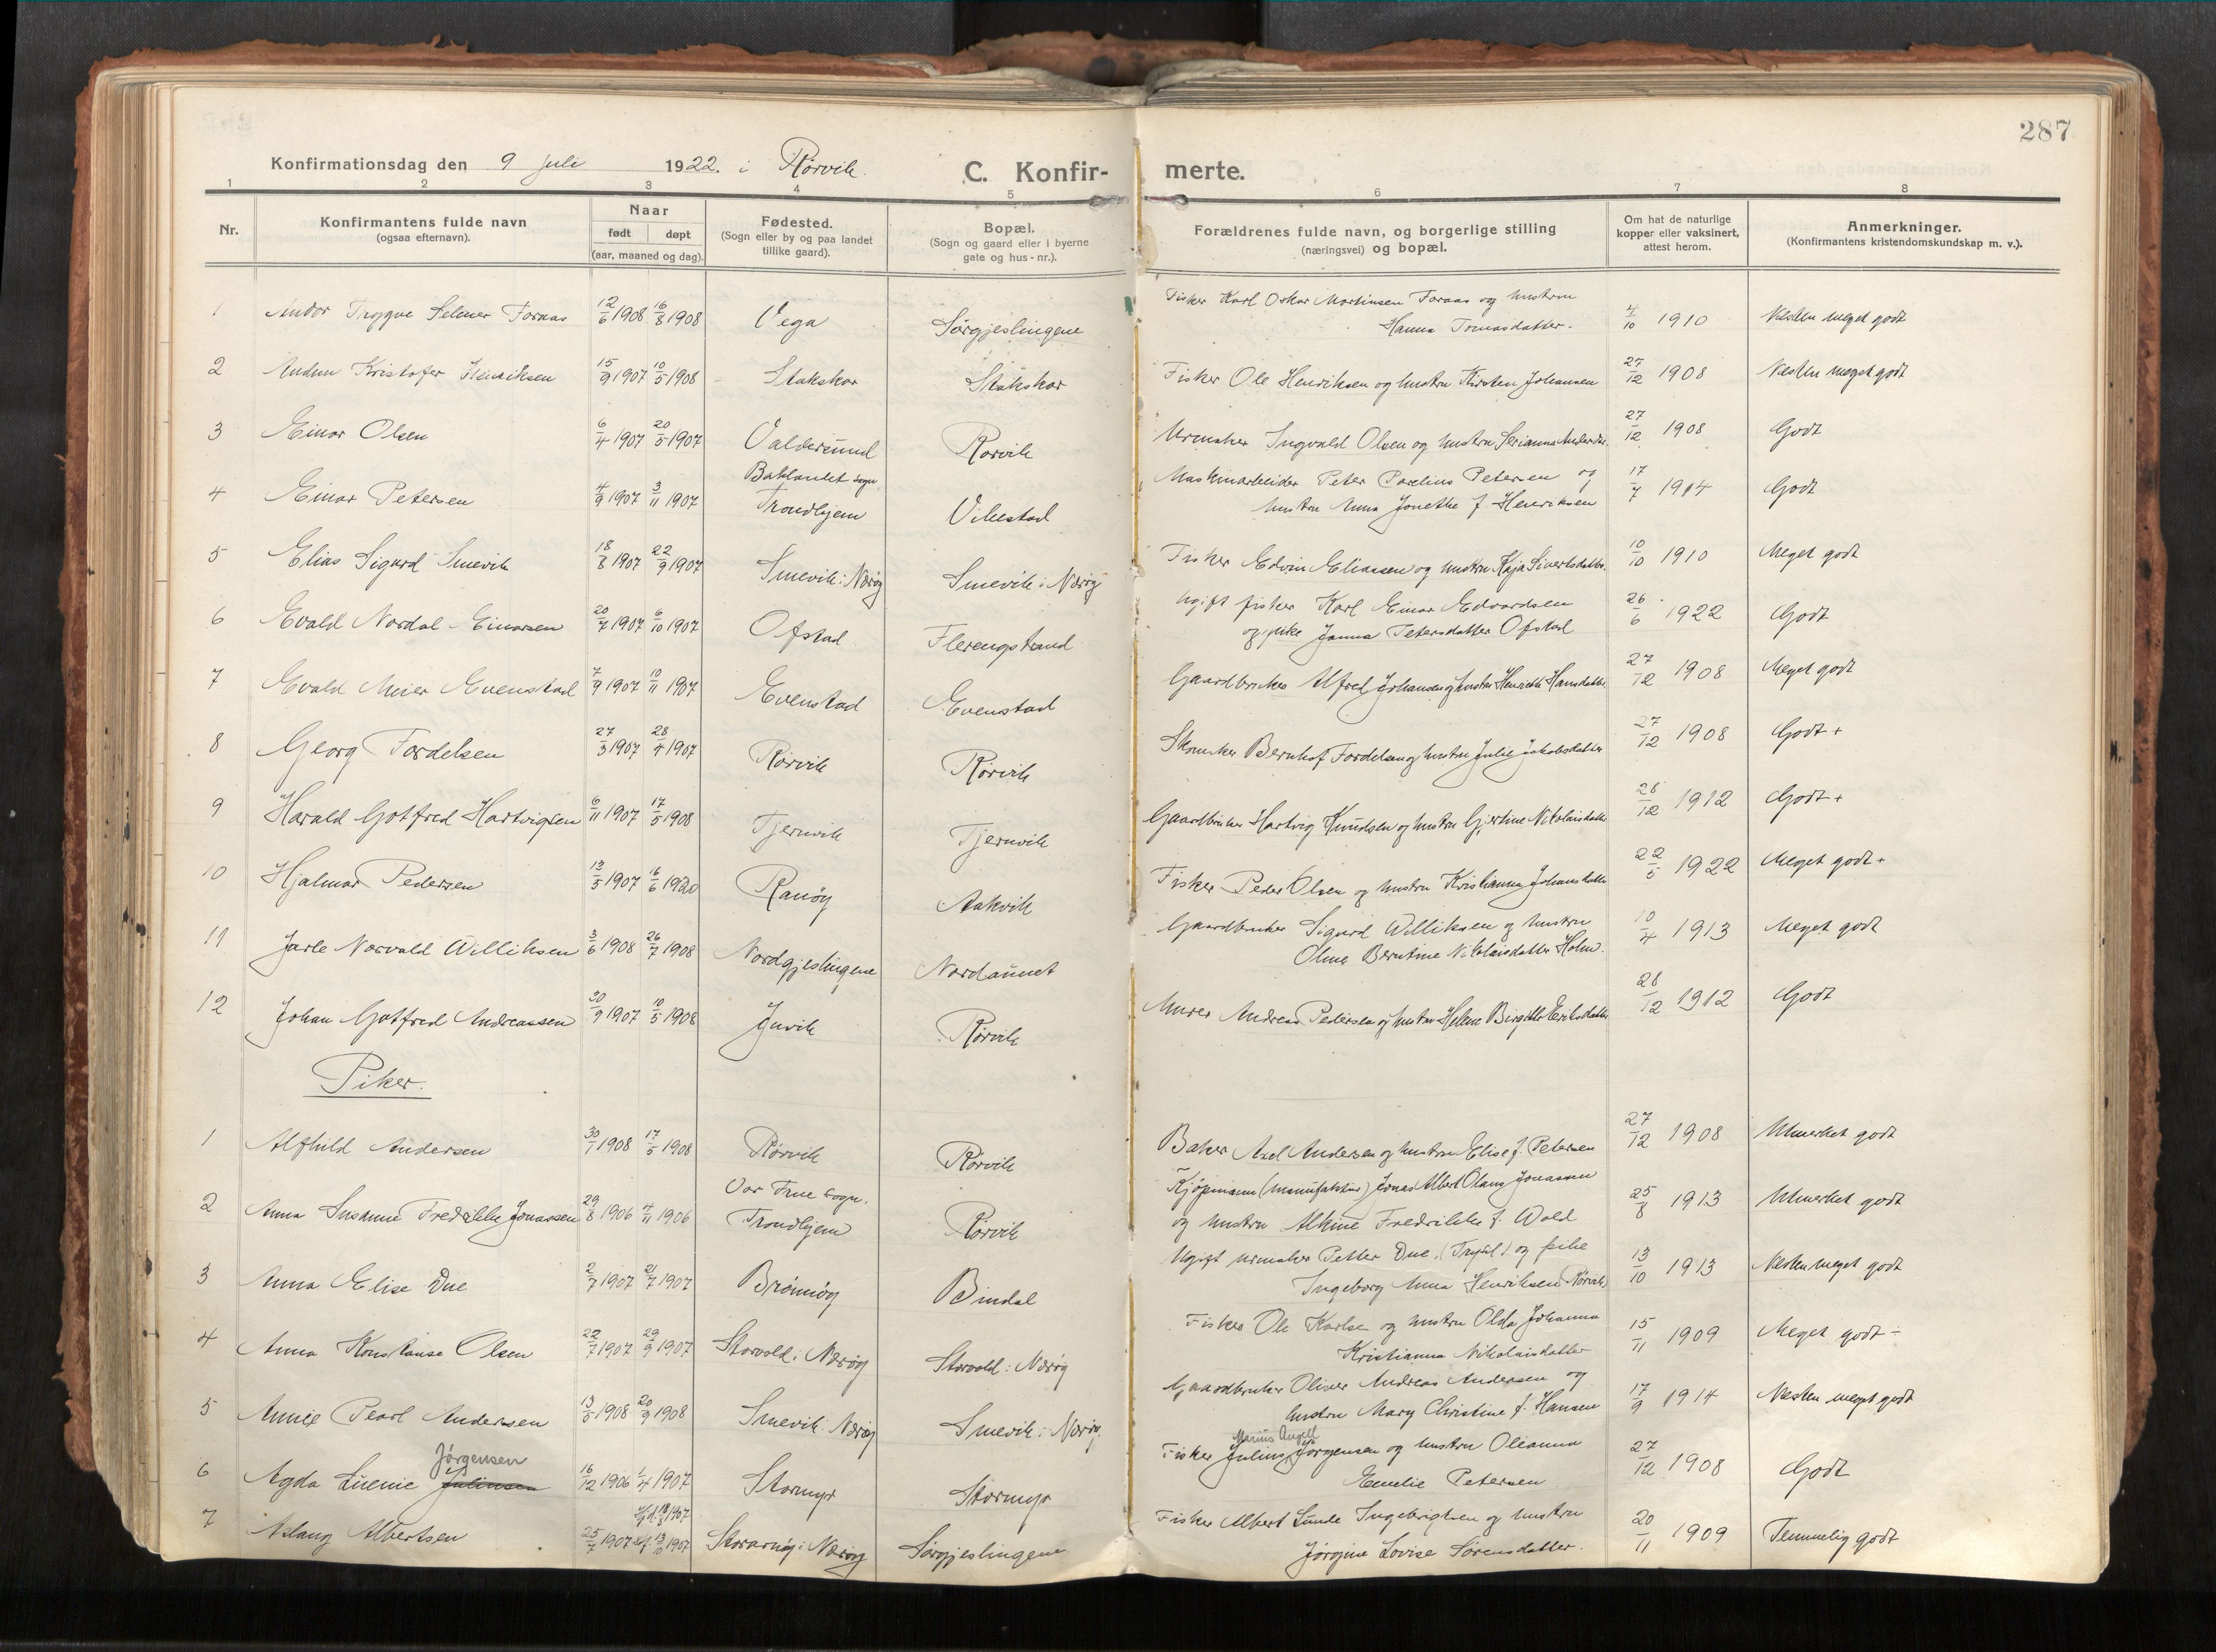 287
Konfirmationsdag den 9 juli 1922. i Rørvik. C. Konfir- merte.
1 2 3 4 5 6 7 8
Nr.
Konfirmantens fulde navn
(ogsaa efternavn).
Naar
født døpt
(aar, maaned og dag).
Fødested.
(Sogn eller by og paa landet
tillike gaard).
Bopæl.
(Sogn og gaard eller i byerne
gate og hus-nr.).
Forældrenes fulde navn, og borgerlige stilling
(næringsvei) og bopæl.
Om hat de naturlige
kopper eller vaksinert,
attest herom.
Anmerkninger.
(Konfirmantens kristendomskundskap m. v.).
Fisker Karl Oskar Martinsen Foraas og hustru
1 Andor Trygve Selmer Foraas 12/6 1908 16/8 1908 Vega Sørgjeslingene Hanna Tomasdatter. 4/10 1910 Næsten meget godt
2 Audun Kristofer Henriksen 15/9 1907 10/5 1908 Stakskar Stakskar Fisker Ole Henriksen og hustru Kirsten Johansen 27/12 1908 Næsten meget godt
3 Einar Olsen 6/4 1907 20/5 1907 Valdersund Rørvik Urmaker Ingvald Olsen og hustru Serianna Andersdtr. 27/12 1908 Godt
Baklandet sogn Maskinarbeider Peter Parelius Petersen og
4 Einar Petersen 4/9 1907 3/11 1907 Trondhjem Vikestad hustru Anna Jonethe f. Henriksen 17/7 1914 Godt
5 Elias Sigurd Smevik 18/8 1907 22/9 1907 Smevik i Nærøy Smevik i Nærøy Fisker Edvin Eliassen og hustru Kaja Sivertsdatter. 10/10 1910 Meget godt
Ugift fisker Karl Einar Edvardsen
6 Evald Nordal Einarsen 20/7 1907 6/10 1907 Ofstad Flerengstrand og pike Janna Petersdatter Ofstad 26/6 1922 Godt
7 Evald Meier Evenstad 7/9 1907 10/11 1907 Evenstad Evenstad Gaardbruker Alfred Johansen og hustru Henriette Hansdatter 27/12 1908 Meget godt
8 Georg Fordelsen 27/3 1907 28/4 1907 Rørvik Rørvik Skomaker Bernhof Fordelsen og hustru Julie Jakobsdatter 27/12 1908 Godt +
9 Harald Gotfred Hartvigsen 6/11 1907 17/5 1908 Tjernvik Tjernvik Gaardbruker Hartvig Knudsen og hustru Gjertine Nikolaisdatter 28/12 1912 Godt +
10 Hjalmar Pedersen 13/5 1907 16/6 1920 Ranøy Aakvik Fisker Peder Olsen og hustru Kristianna Johansdatter 22/5 1922 Meget godt +
Gaardbruker Sigurd Williksen og hustru
11 Jarle Norvald Williksen 3/6 1908 26/7 1908 Nordgjeslingene Nordaunet Oline Berntine Nikolaisdatter Holm. 10/4 1913 Meget godt
12 Johan Gotfred Andreassen 30/9 1907 10/5 1908 Juvik Rørvik Murer Andreas Pedersen og hustru Helene Birgitte Eriksdatter 28/12 1912 Godt
Piker.
1 Alfhild Andersen 30/1 1908 17/5 1908 Rørvik Rørvik Baker Axel Andersen og hustru Elise f. Petersen 27/12 1908 Utmerket godt
Vor Frue sogn. Kjøpmann (manufaktur) Jonas Albert Olaus Jonassen
2 Anna Susanne Fredrikke Jonassen 29/8 1906 4/11 1906 Trondhjem Rørvik og hustru Alhine Fredrikke f. Wold 25/8 1913 Utmerket godt
Ugift urmaker Petter Due (Trysil) og pike
3 Anna Elise Due 2/7 1907 21/7 1907 Brønnøy Bindal Ingeborg Anna Henriksen (Rørvik) 13/10 1913 Næsten meget godt
Fisker Ole Karlsen og hustru Olsa Johanna
4 Anna Konstanse Olsen 22/7 1907 29/9 1907 Storvold i Nærøy Storvold i Nærøy Kristianna Nikolaisdatter 15/11 1909 Meget godt ÷
Gaardbruker Oliver Andreas Andersen og
5 Annie Pearl Andersen 13/5 1908 20/9 1908 Smevik Nærøy Smevik i Nærøy. hustru Mary Christine f. Hansen 17/9 1914 Næsten meget godt
Jørgensen Marius Angell
Fisker Julius Jørgensen og hustru Oleanna
6 Agda Luenie Juliussen 16/12 1906 1/4 1907 Stormyr Stormyr Emelie Petersen 27/12 1908 Godt
Fisker Albert Lunde Ingebrigtsen og hustru
7 Aslaug Albertsen 25/7 1907 13/10 1907 Storarnøy i Nærøy Sørgjeslingene Jørgine Lovise Sørensdatter. 20/11 1909 Temmelig godt